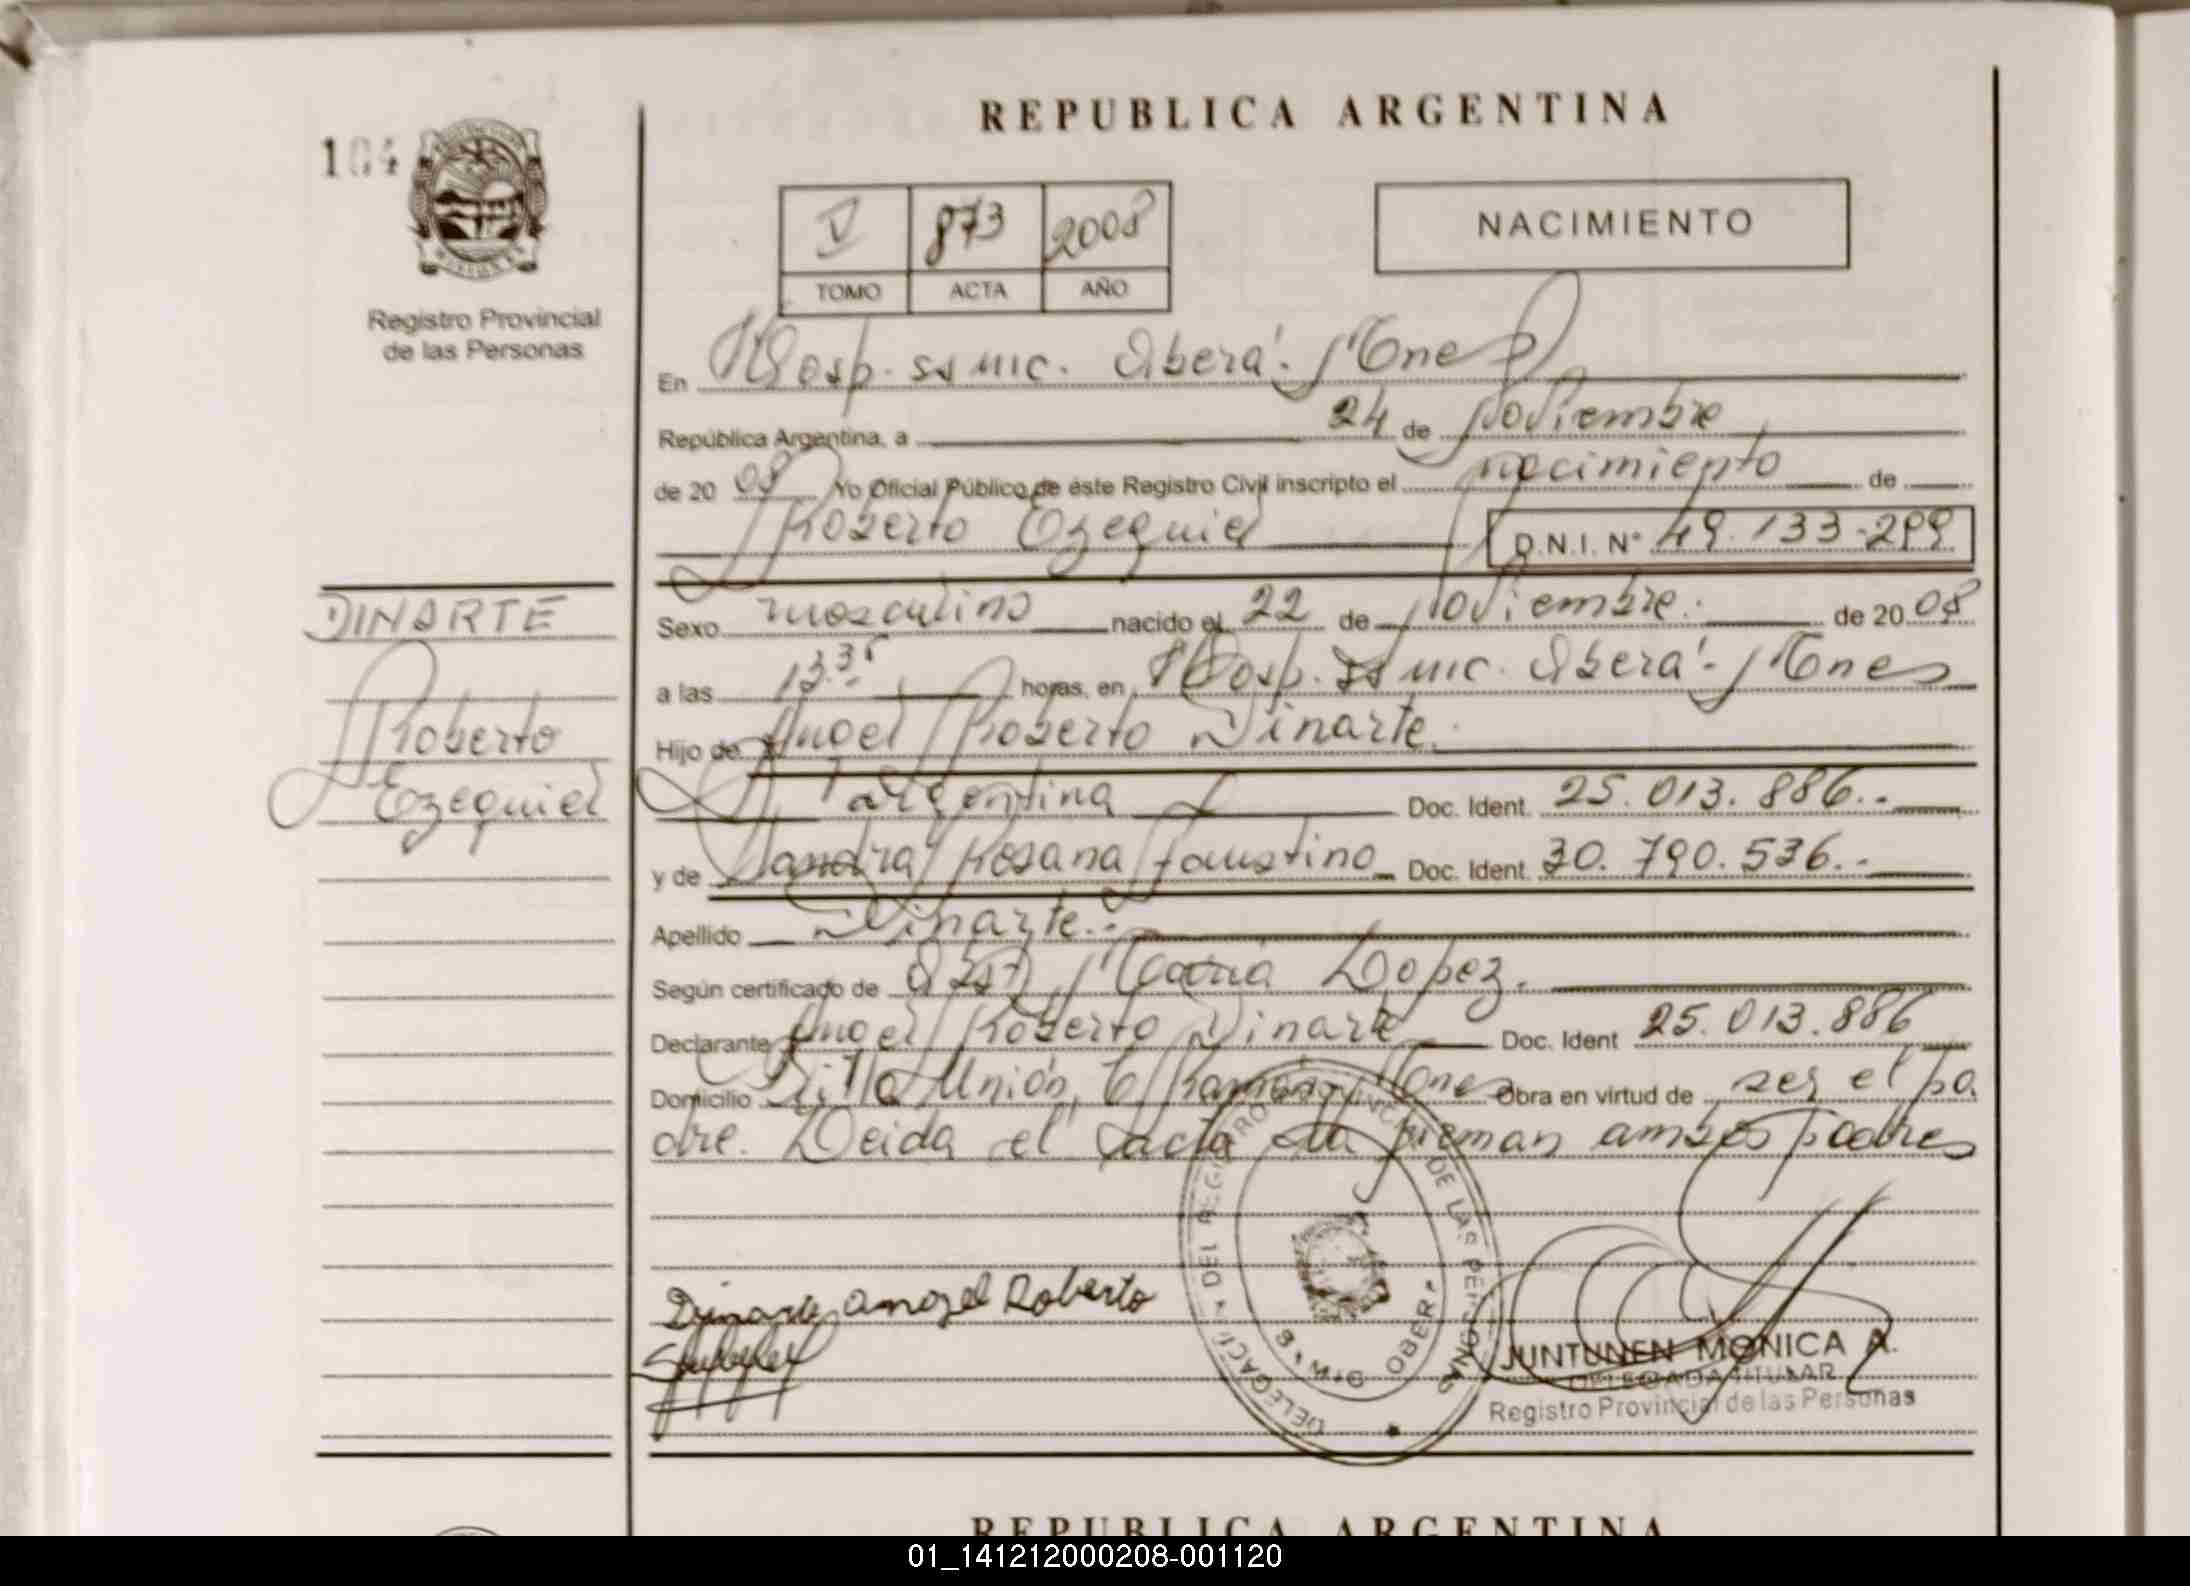 REPUBLICA ARGENTINA
104
V 873 2008
TOMO ACTA AÑO
NACIMIENTO
Registro Provincial
de las Personas
En Hosp. ss mic. Oberá. Mnes
República Argentina, a 24 de Noviembre
de 20 08 Yo Oficial Público de éste Registro Civil inscripto el nacimiento de
Roberto Ezequiel D.N.I. N° 49.133.299
DINARTE
Roberto
Ezequiel
Sexo masculino nacido el 22 de Noviembre. de 20 08
a las 13.35 horas, en Hosp. ss mic. Oberá. Mnes
Hijo de Angel Roberto Dinarte.
argentina Doc. Ident. 25.013.886.-
y de Sandra Rosana Faustino Doc. Ident. 30.790.536.-
Apellido Dinarte.-
Según certificado de Obst. Maria Lopez.
Declarante Angel Roberto Dinarte Doc. Ident 25.013.886
Domicilio Villa Unión, C Ramón, Mnes Obra en virtud de ser el pa
dre. Leida el acta la firman ambos padres
Dinarte Angel Roberto
DELEGACION DEL REGISTRO PROVINCIAL DE LAS PERSONAS
OBERA
JUNTUNEN MONICA A.
DELEGADA TITULAR
Registro Provincial de las Personas
REPUBLICA ARGENTINA
01_141212000208-001120